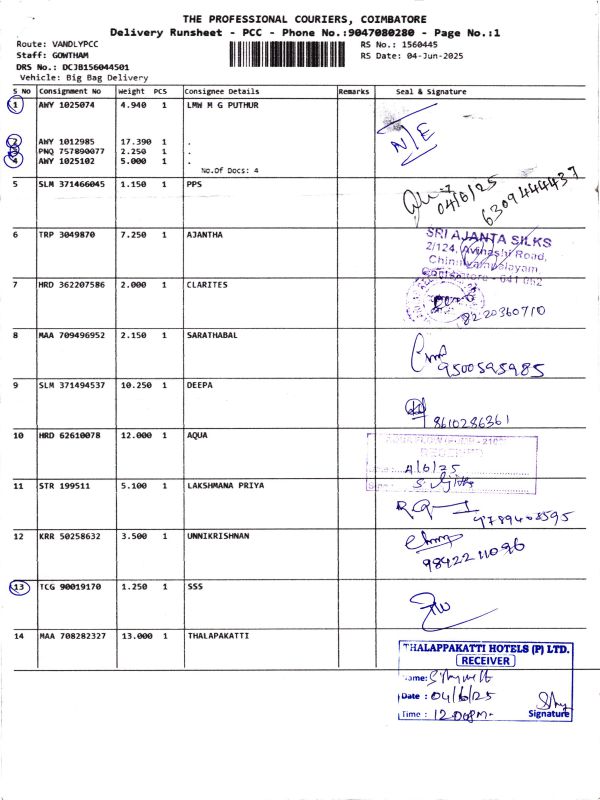 THE PROFESSIONAL COURIERS, COIMBATORE
Delivery Runsheet - PCC - Phone No.:9047080280 - Page No.:1
Route: VANDLYPCC
RS No.: 1560445
Staff: GOWTHAM
RS Date: 04-Jun-2025
DRS No.: DCJB156044501
Vehicle: Big Bag Delivery
S No Consignment No Weight PCS Consignee Details Remarks Seal & Signature
1 AWY 1025074 4.940 1 LMW M G PUTHUR
N/E
2 AWY 1012985 17.390 1 .
3 PNQ 757890077 2.250 1 .
4 AWY 1025102 5.000 1 .
No.Of Docs: 4
5 SLM 371466045 1.150 1 PPS
04/6/25
6309444437
6 TRP 3049870 7.250 1 AJANTHA
SRI AJANTA SILKS
2/124, Avinashi Road,
Chinniyampalayam
Coimbatore - 641 062
7 HRD 362207586 2.000 1 CLARITES
8220360710
8 MAA 709496952 2.150 1 SARATHABAL
9500595985
9 SLM 371494537 10.250 1 DEEPA
8610286361
10 HRD 62610078 12.000 1 AQUA
RECEIVED
4/6/25
11 STR 199511 5.100 1 LAKSHMANA PRIYA
9789403595
12 KRR 50258632 3.500 1 UNNIKRISHNAN
9842211096
13 TCG 90019170 1.250 1 SSS
14 MAA 708282327 13.000 1 THALAPAKATTI
THALAPPAKATTI HOTELS (P) LTD.
RECEIVER
Name:
Date : 04/6/25
Time : 12.00PM
Signature